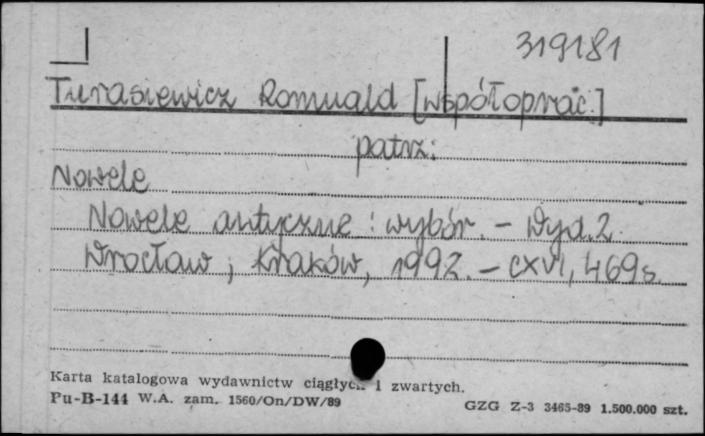 319181
Turasiewicz Romuald [współoprac.]
patrz:
Nowele
Nowele antyczne : wybór. - Wyd. 2.
Wrocław ; Kraków, 1992. - CXVI, 469 s.
Karta katalogowa wydawnictw ciągłych i zwartych.
Pu-B-144 W.A. zam. 1560/On/DW/89
GZG Z-3 3465-89 1.500.000 szt.